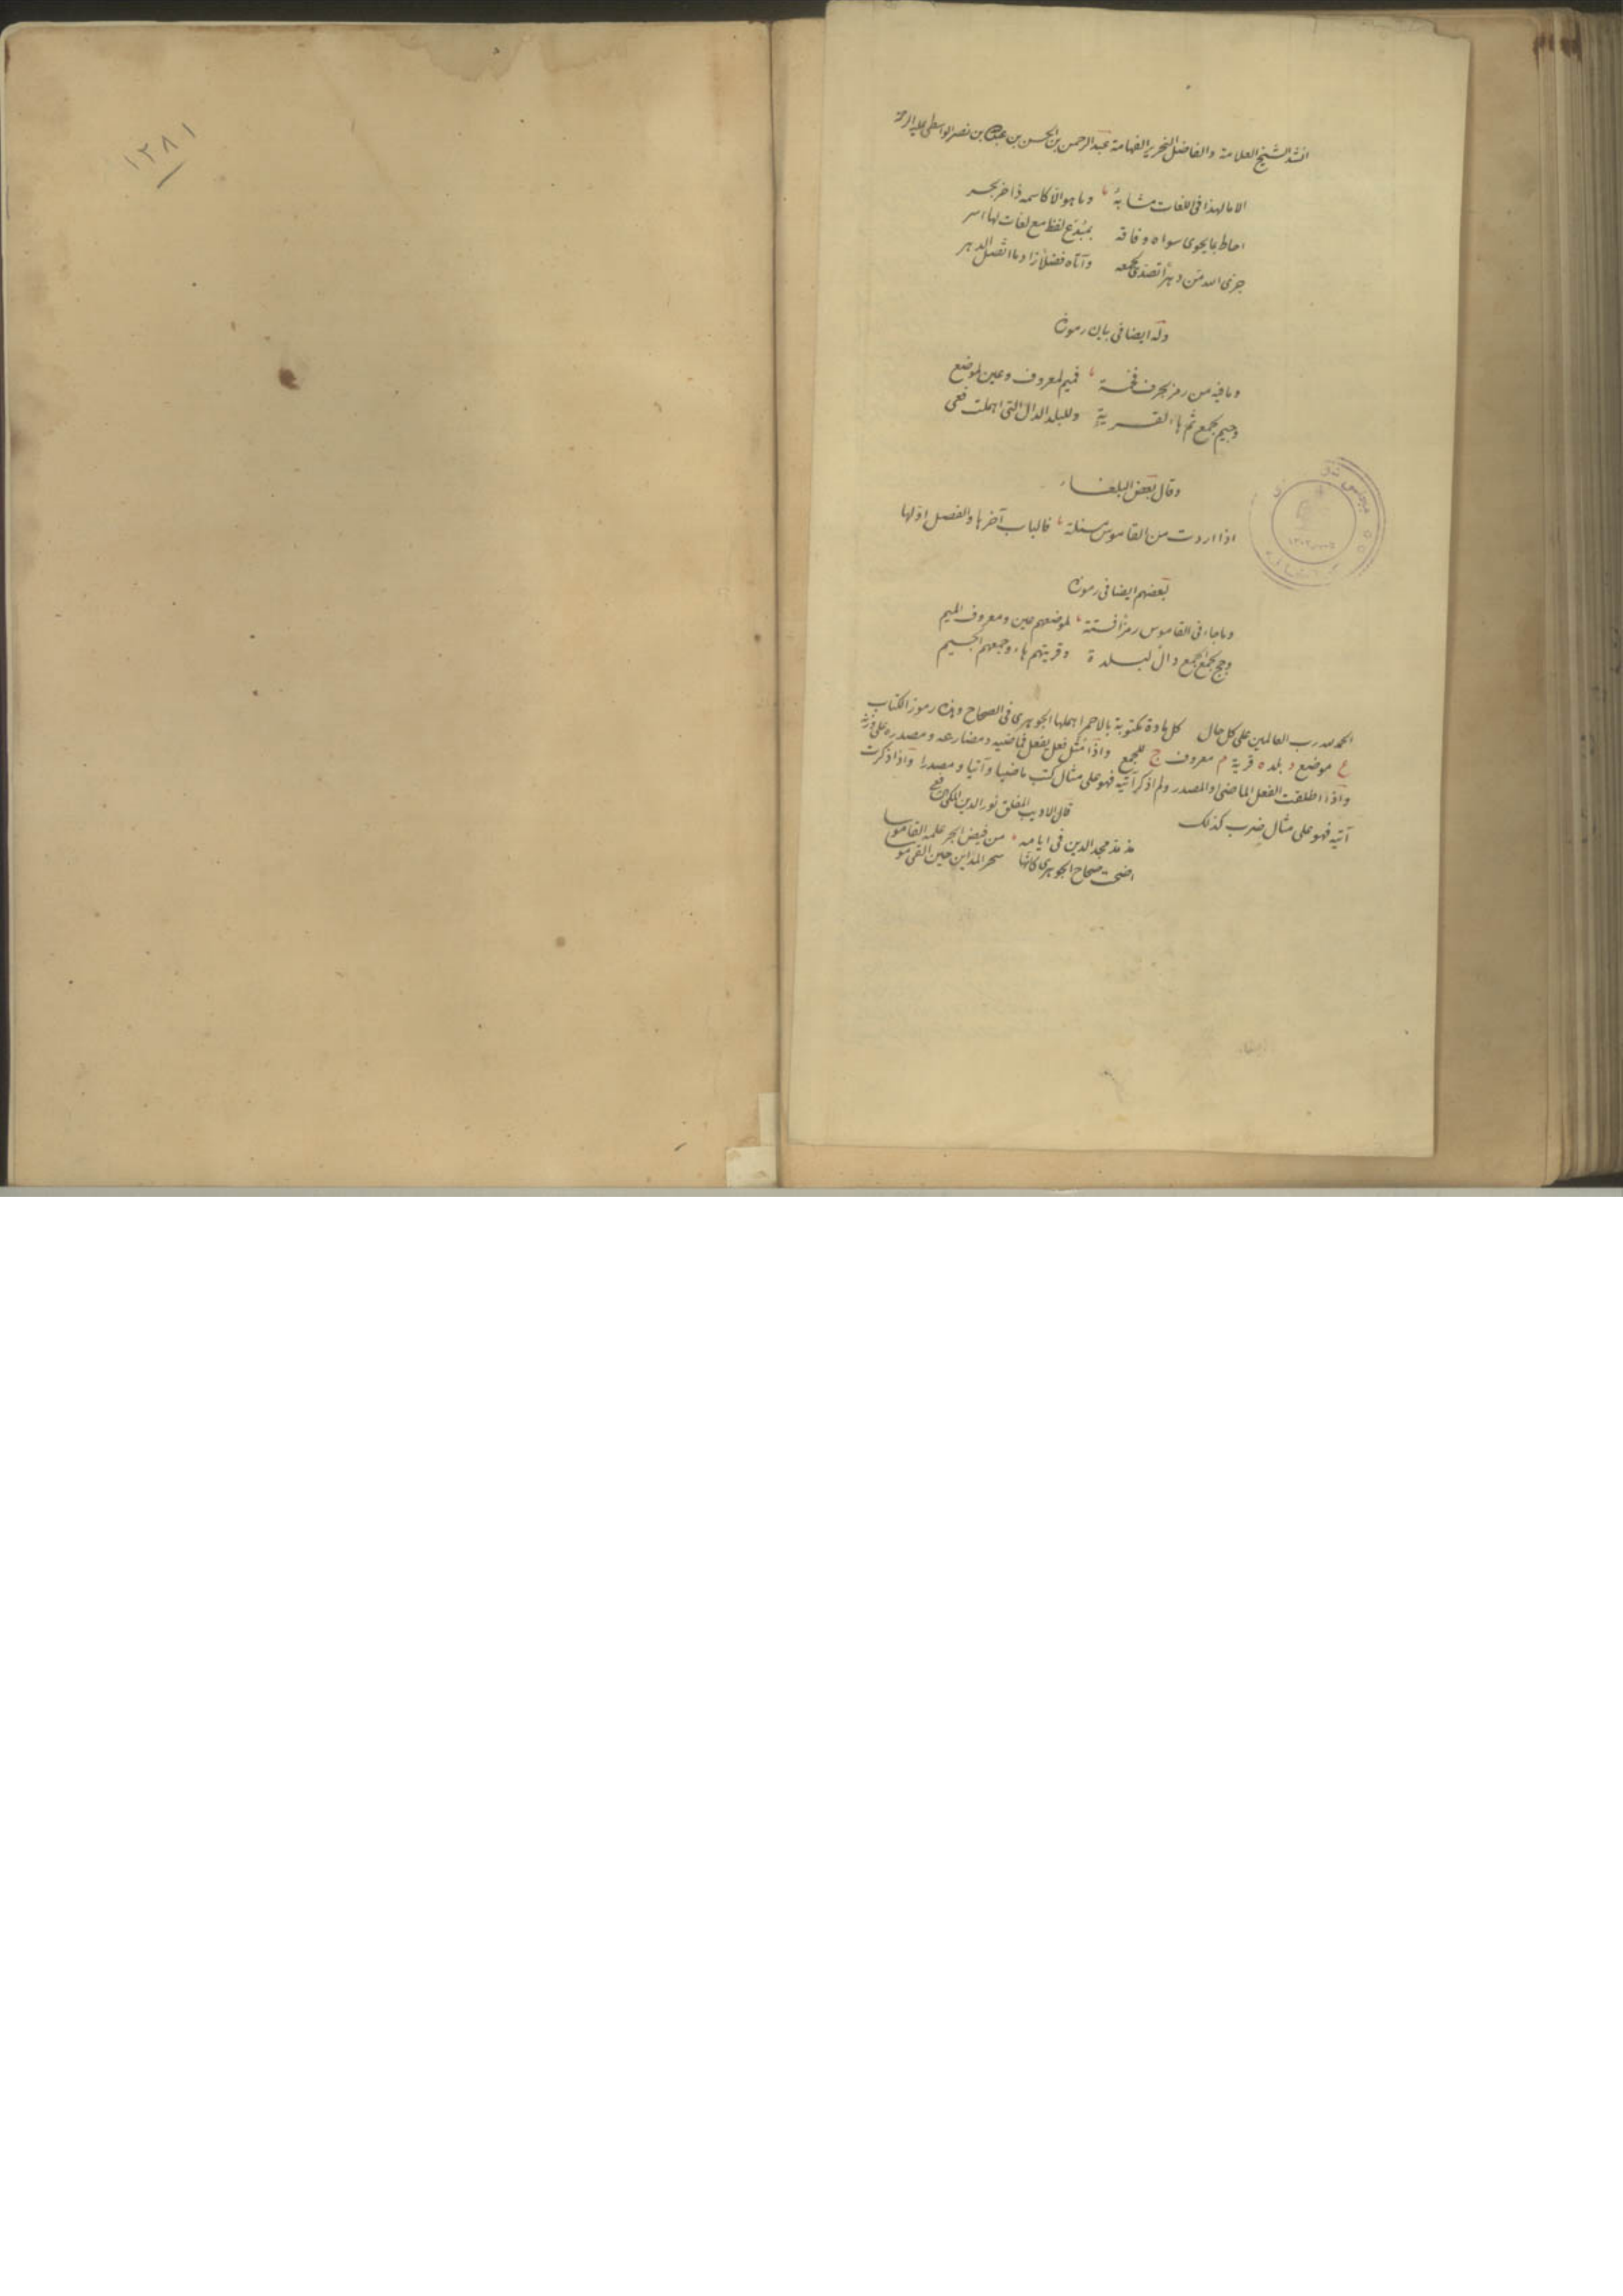 ١٢٨١
انشد الشيخ العلامة والفاضل النحرير الفهامة عبد الرحمن بن الحسن بن بن نصر الواسطى عليه الرحمة
الا ما لهذا فى اللغات مشابهٌ وما هو الا كاسمه زاخر بحر
احاط بما يحوى سواه وفاقه بمبدع لفظ مع لغات لها اسر
جزى الله من دهرا تصدى لجمعه وآتاه فضلا زاد ما اتصل الدهر
وله ايضا فى بيان رموزه
وما فيه من رمز بحرف فخمسة فميم لمعروف وعين لموضع
وجيم لجمع ثم هاء لقرية وللبلد الدال التى اهملت فعى
وقال بعض البلغاء
اذا اردت من القاموس مسئلة فالباب آخرها والفصل اولها
بعضهم ايضا فى رموزه
وما جاء فى القاموس رمزا فستة لموضعهم عين ومعروف الميم
وجج لجمع الجمع دال لبلدة وقريتهم هاء وجمعهم الجيم
الحمد لله رب العالمين على كل حال كل مادة مكتوبة بالاحمر اهملها الجوهرى فى الصحاح وهذه رموز الكتاب
ع موضع د بلد ه قرية م معروف ج للجمع واذا مثل فعل يفعل فماضيه ومضارعه ومصدره على وزنه
واذا اطلقت الفعل الماضى او المصدر ولم اذكر آتيه فهو على مثال كتب ماضيا وآتيا ومصدرا واذا ذكرت
آتيه فهو على مثال ضرب كذلك
قال الاديب المفلق نور الدين المكى
مذ مد مجد الدين فى ايامه من فيض ابحر علمه القاموسا
اضحت صحاح الجوهرى كانها سحر المداين حين القى موسى